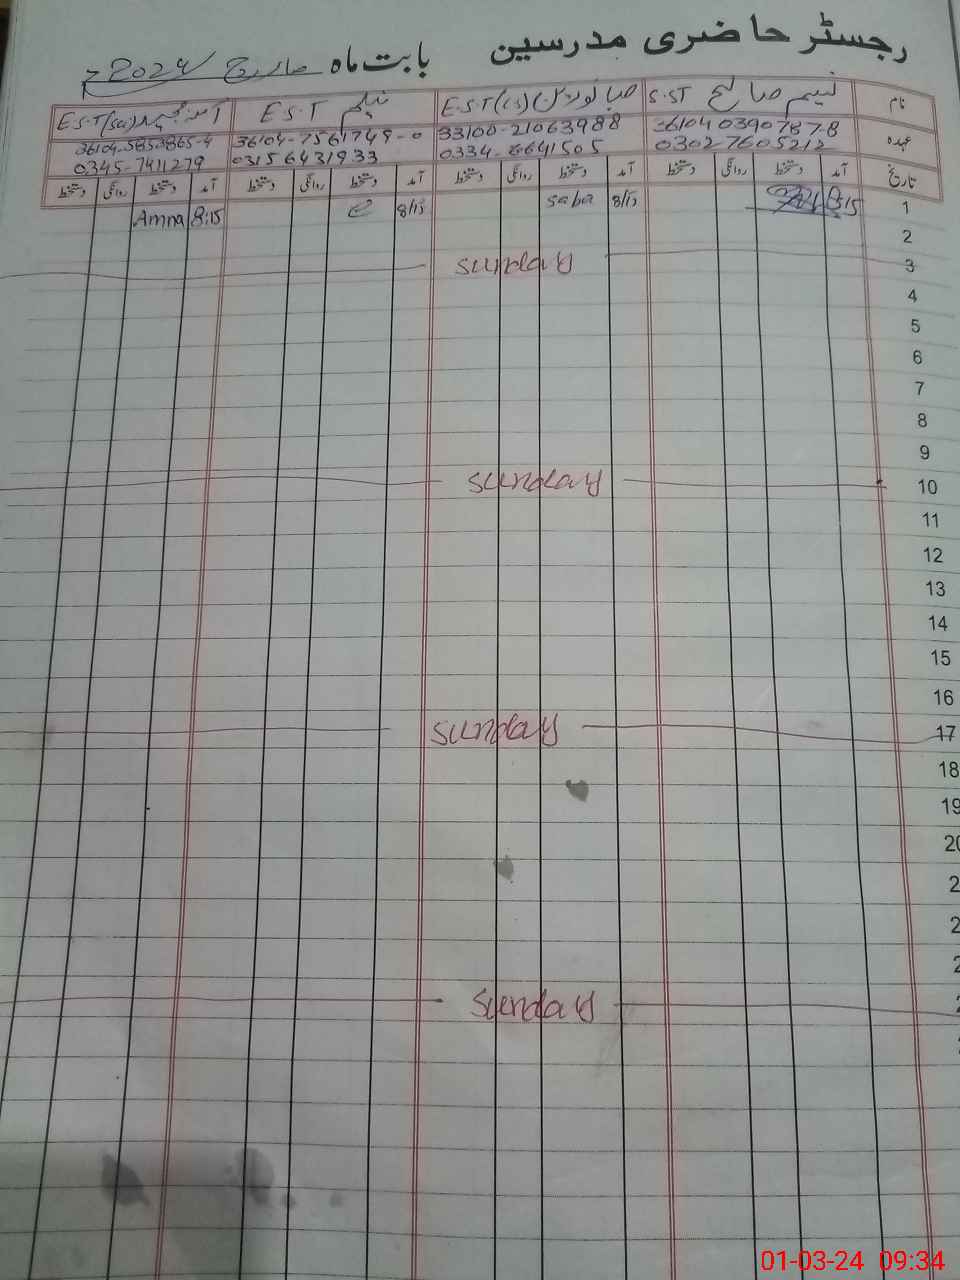 رجسٹر حاضری مدرسین بابت ماہ مارچ 2024
نام نسیم صالح S.ST صبا نورین E.S.T(CS) نیلم E.S.T آمنہ E.S.T(Sci)
عہدہ 36104 0390787-8 33100-21063988 36104-7561749-0 36104-5852865-4
03027605212 0334-6641505 03156431933 0345-7411279
تاریخ آمد دستخط روانگی دستخط آمد دستخط روانگی دستخط آمد دستخط روانگی دستخط آمد دستخط روانگی دستخط
1 8:15 8/15 saba 8/15 8:15 Amna
2
3 sunday
4
5
6
7
8
9
10 sunday
11
12
13
14
15
16
17 sunday
18
19
20
sunday
01-03-24 09:34